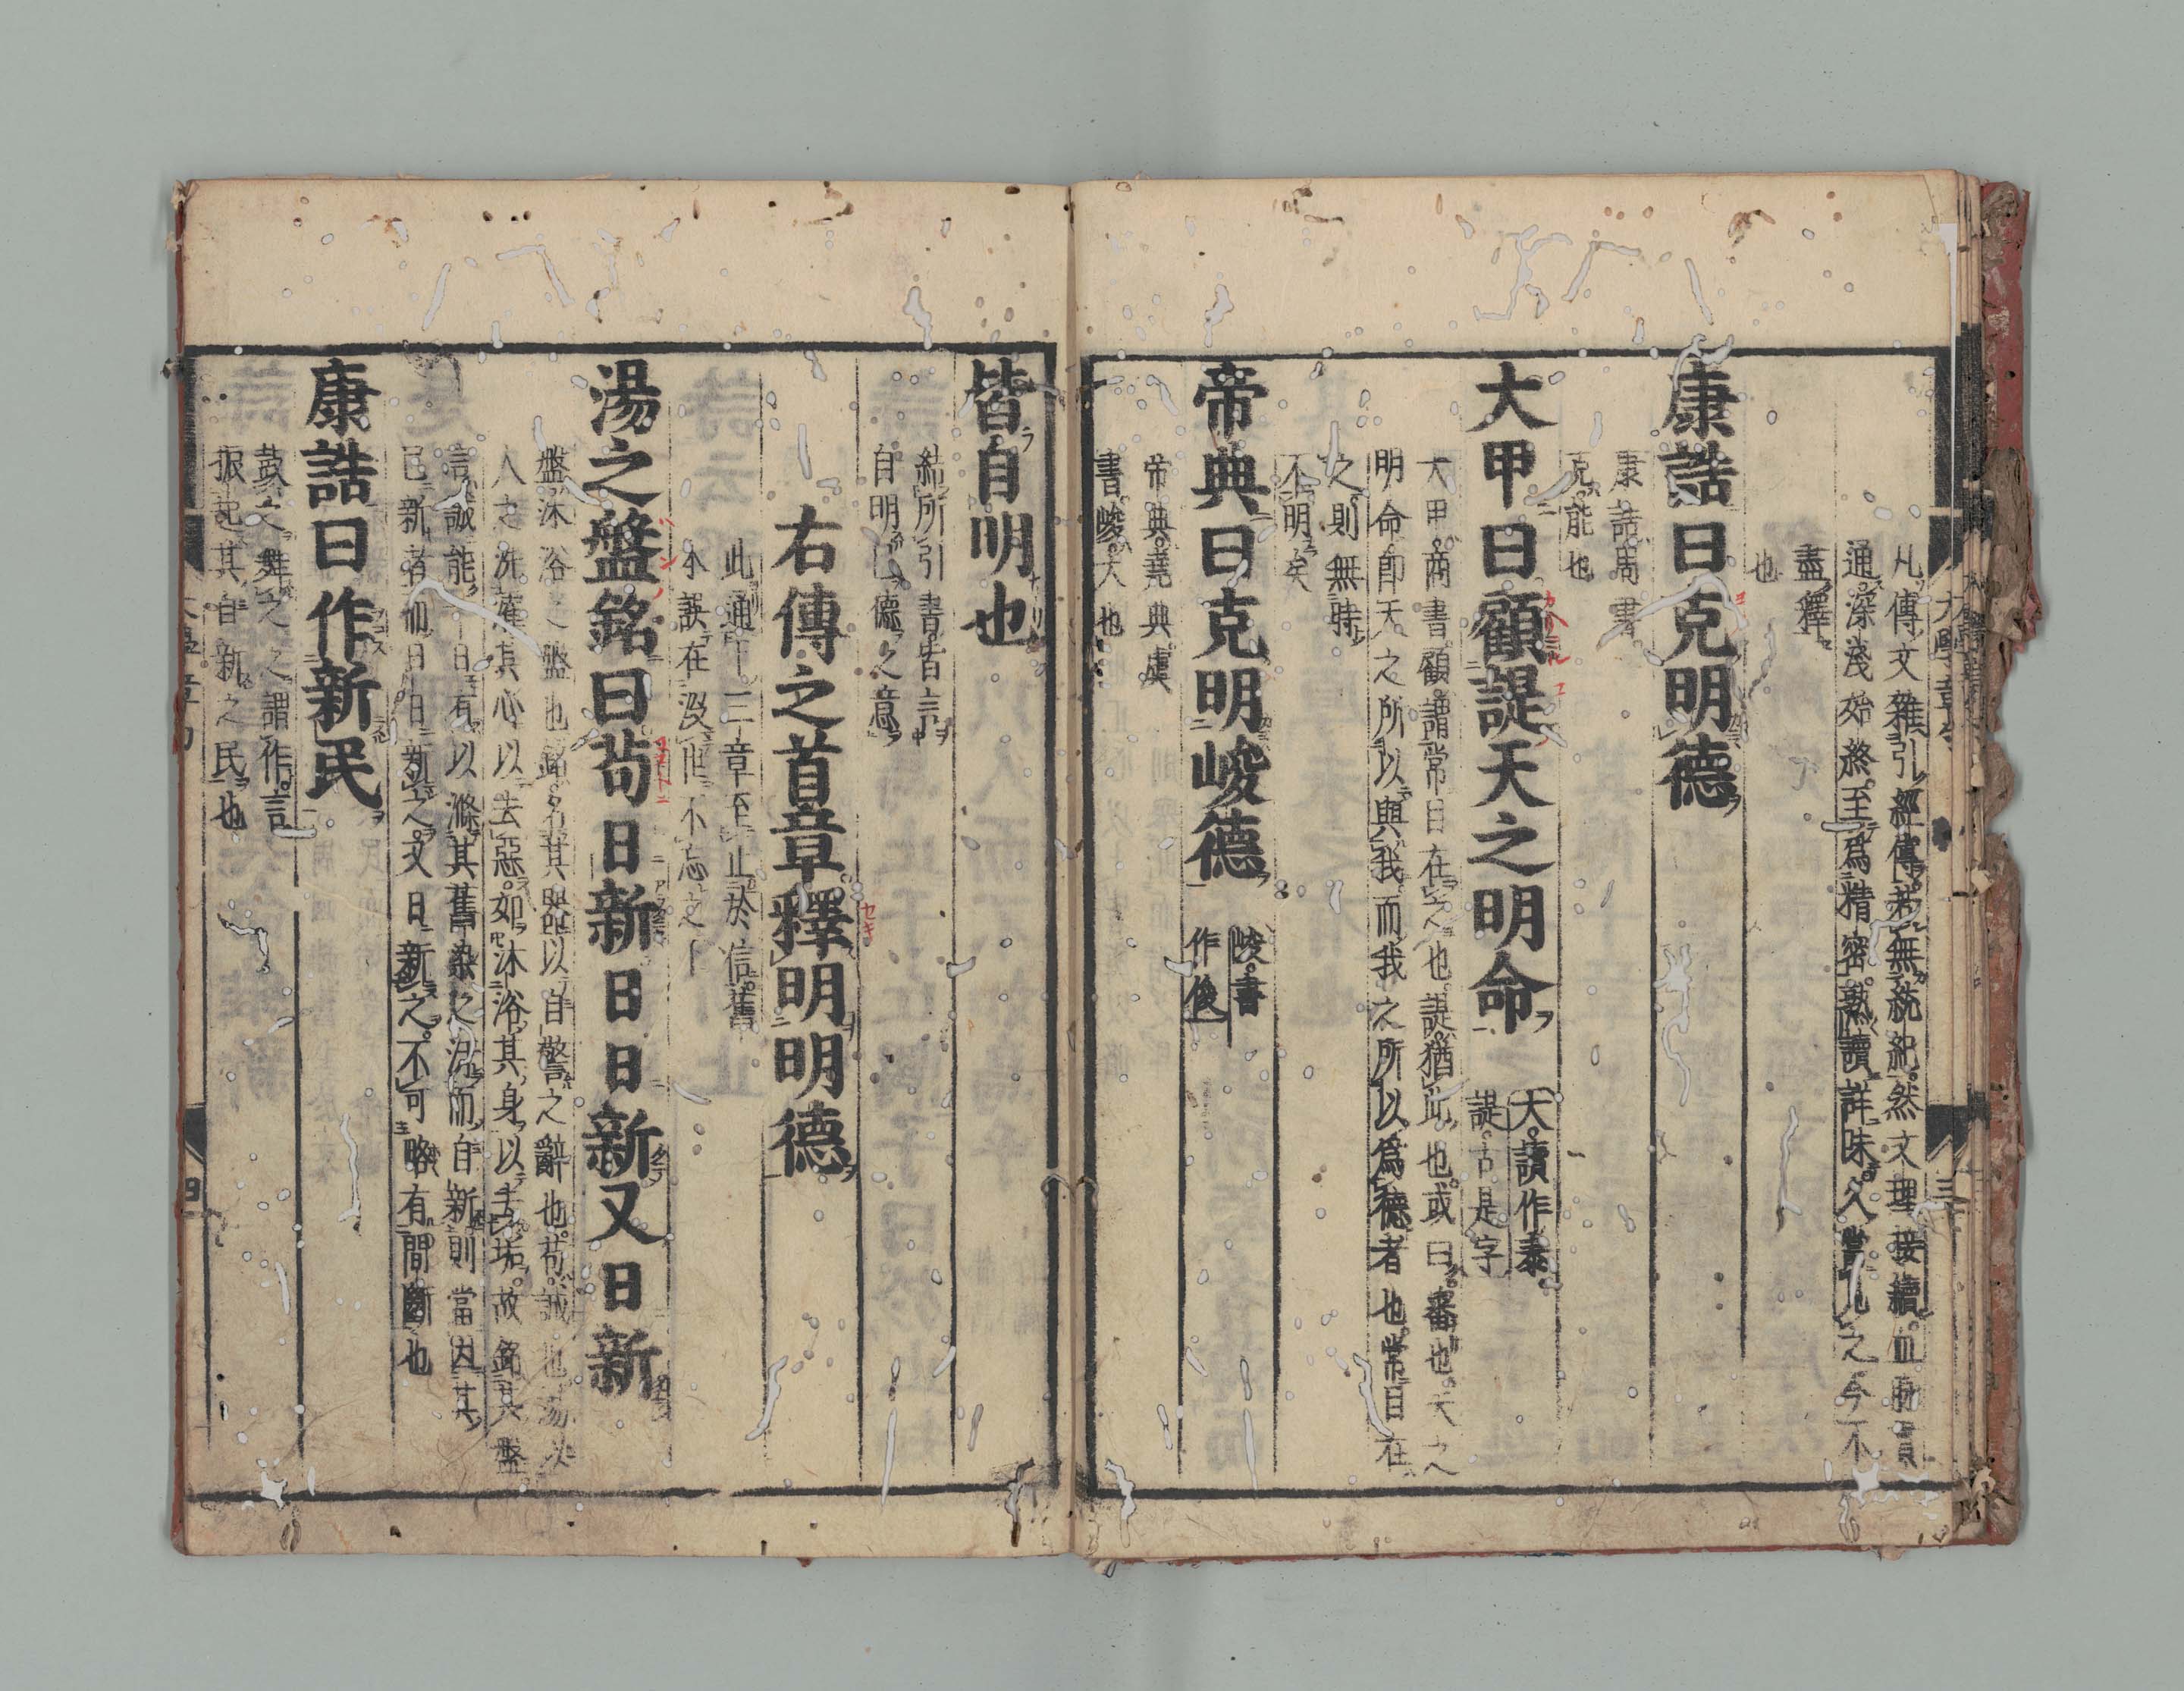 凡傳文雜引經傳若無統紀然文理接續血脉貫
通深淺始終至爲精密熟讀詳味久當見之今不
盡釋
也
康誥曰克明德
康誥周書
克能也
大甲曰顧諟天之明命
大讀作泰
諟古是字
大甲商書顧謂常目在之也諟猶此也或曰審也天之
明命即天之所以與我而我之所以爲德者也常目在
之則無時
不明矣
帝典曰克明峻德
峻書
作俊
帝典堯典虞
書峻大也
皆自明也
結所引書皆言
自明己德之意
右傳之首章釋明明德
此通下三章至止於信舊
本誤在沒世不忘之下
湯之盤銘曰苟日新日日新又日新
盤沐浴之盤也銘名其器以自警之辭也苟誠也湯以
人之洗濯其心以去惡如沐浴其身以去垢故銘其盤
言誠能一日有以滌其舊染之汚而自新則當因其
已新者而日日新之又日新之不可略有間斷也
康誥曰作新民
鼓之舞之之謂作言
振起其自新之民也